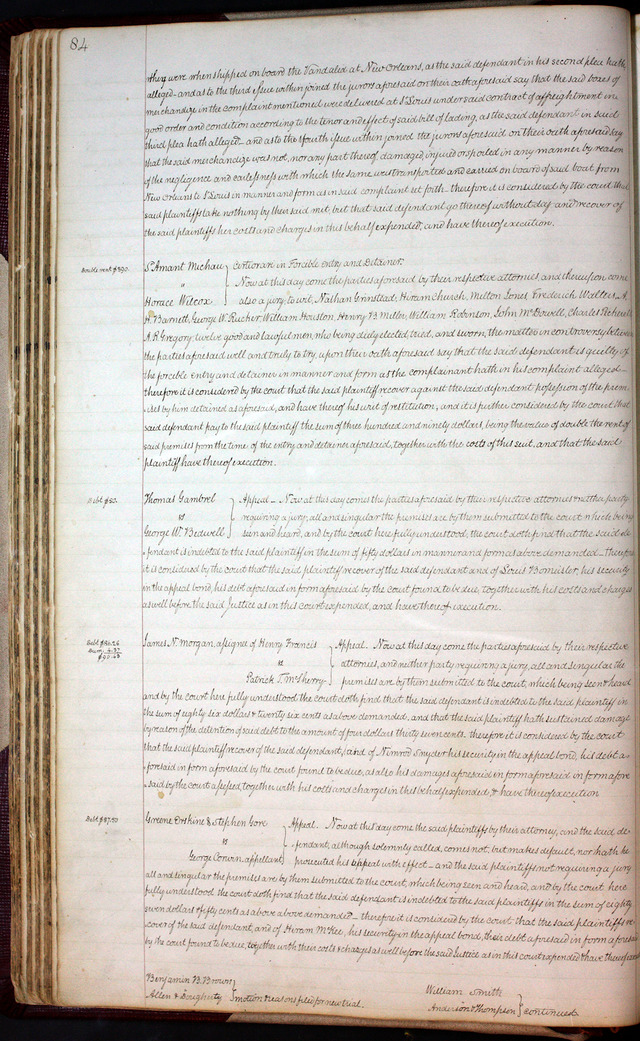 84
they were when shipped on board the Vandalia at New Orleans, as the said defendant in his second plea hath
alleged – and as to the third issue within joined the jurors aforesaid on their oath aforesaid say that the said boxes of
merchandize in the complaint mentioned were delivered at St Louis under said contract of affreightment in
good order and condition according to the tenor and effect of said bill of lading, as the said defendant in said
third plea hath alleged – and as to the fourth issue within joined the jurors aforesaid on their oath aforesaid say
that the said merchandize was not, nor any part thereof, damaged, injured or spoiled in any manner by reason
of the negligence and carelessness with which the same was transported and carried on board of said boat from
New Orleans to St Louis in manner and form as in said complaint set forth. therefore it is considered by the court that
said plaintiffs take nothing by their said writ, but that said defendant go thereof without day and recover of
the said plaintiffs her costs and charges in this behalf expended, and have thereof execution.
Double rent $390.
St Amant Michau } certiorari in Forcible entry and Detainer.
" Now at this day come the parties aforesaid by their respective attornies, and thereupon come
Horace Wilcox } also a jury, to wit, Nathan Grinstead, Hiram Church, Melton Jones, Frederick Walters, A.
H. Barnett, George W. Rucker, William Houston, Henry B. Miller, William Robinson, John McDowell, Charles
A. R. Gregory, twelve good and lawful men, who being duly elected, tried, and sworn, the matter in controversy between
the parties aforesaid well and truly to try, upon their oath aforesaid say that the said defendant is guilty of
the forcible entry and detainer in manner and form as the complainant hath in his complaint alleged –
therefore it is considered by the court that the said plaintiff recover against the said defendant possession of the prem
ises by him detained as aforesaid, and have thereof his writ of restitution, and it is further considered by the court that
said defendant pay to the said plaintiff the sum of three hundred and ninety dollars, being the value of double the rent of
said premises from the time of the entry and detainer aforesaid, together with the costs of this suit, and that the said
plaintiff have thereof execution.
Debt $50.
Thomas Gambrel } Appeal – Now at this day comes the parties aforesaid by their respective attornies & neither party
vs requiring a jury, all and singular the premises are by them submitted to the court which being
George W. Bedwell } seen and heard, and by the court here fully understood, the court doth find that the said de
fendant is indebted to the said plaintiff in the sum of fifty dollars in manner and form as above demanded – Therefore
it is considered by the court that the said plaintiff recover of the said defendant and of Louis Bomeisler, his security
in the appeal bond, his debt aforesaid in form aforesaid by the court found to be due, together with his costs and charges
as well before the said Justice as in this court expended, and have thereof execution.
Debt $86.26
Dam. 4.37
$90.63
James N. Morgan, assignee of Henry Francis } Appeal. Now at this day come the parties aforesaid by their respective
vs attornies, and neither party requiring a jury, all and singular the
Patrick T. McSherry } premises are by them submitted to the court, which being seen & heard
and by the court here fully understood the court doth find that the said defendant is indebted to the said plaintiff in
the sum of eighty six dollars & twenty six cents as above demanded, and that the said plaintiff hath sustained damage
by reason of the detention of said debt to the amount of four dollars thirty seven cents. therefore it is considered by the court
that the said plaintiff recover of the said defendant, and of Nimrod Snyder his security in the appeal bond, his debt a-
foresaid in form aforesaid by the court found to be due, as also his damages aforesaid in form aforesaid in form afore
said by the court assessed, together with his costs and charges in this behalf expended, & have thereof execution
Debt $87.50
Greene Erskine & Stephen Gore } Appeal. Now at this day come the said plaintiffs by their attorney, and the said de
vs fendant, although solemnly called, comes not, but makes default, nor hath he
George Corwin, appellant } prosecuted his appeal with effect – and the said plaintiffs not requiring a jury
all and singular the premises are by them submitted to the court, which being seen and heard, and by the court here
fully understood the court doth find that the said defendant is indebted to the said plaintiffs in the sum of eighty
seven dollars & fifty cents as above above demanded – therefore it is considered by the court that the said plaintiffs re
cover of the said defendant, and of Hiram McKee, his security in the appeal bond, their debt aforesaid in form aforesaid
by the court found to be due, together with their costs & charges as well before the said Justice as in this court expended & have thereof
Benjamin B. Brown }
Allen & Dougherty } motion & reasons filed for new trial.
William Smith
Anderson & Thompson } continued.